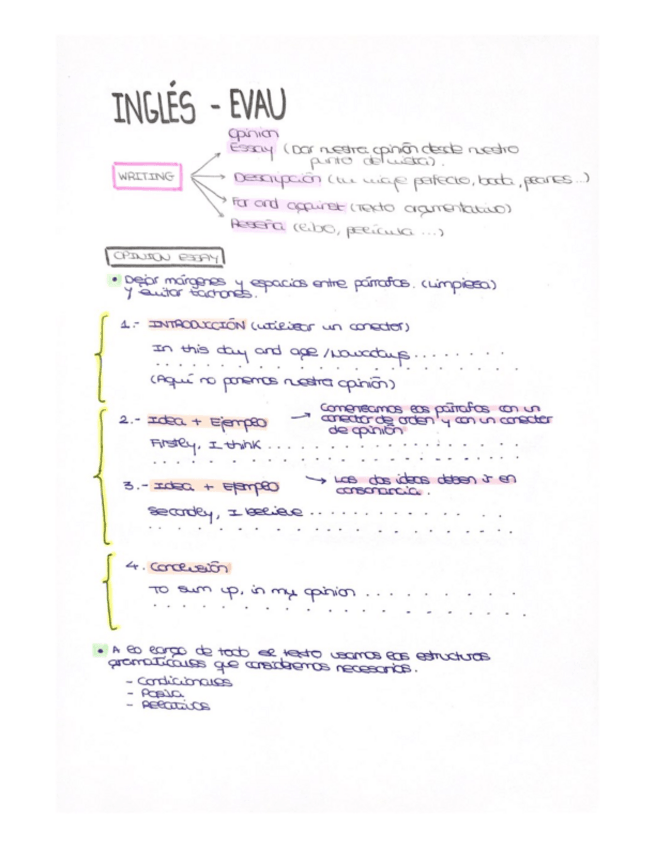 INGLÉS - EVAU
WRITING
Opinion
Essay (Dar nuestra opinión desde nuestro
punto de vista).
Descripción (tu viaje perfecto, boda, planes...)
For and against (texto argumentativo)
Reseña (libro, película ...)
OPINION ESSAY
• Dejar márgenes y espacios entre párrafos. (Limpieza)
y evitar tachones.
1.- INTRODUCCIÓN (utilizar un conector)
In this day and age / Nowadays . . . . . . . .
(Aquí no ponemos nuestra opinión)
2.- Idea + Ejemplo → Comenzamos los párrafos con un
conector de orden y con un conector
de opinión
Firstly, I think . . . . . . . .
3.- Idea + Ejemplo → Las dos ideas deben ir en
consonancia.
Secondly, I believe . . . . . . . .
4. Conclusión
To sum up, in my opinion . . . . . . . .
• A lo largo de todo el texto usamos las estructuras
gramaticales que consideremos necesarias.
- Condicionales
- Pasiva
- Relativos